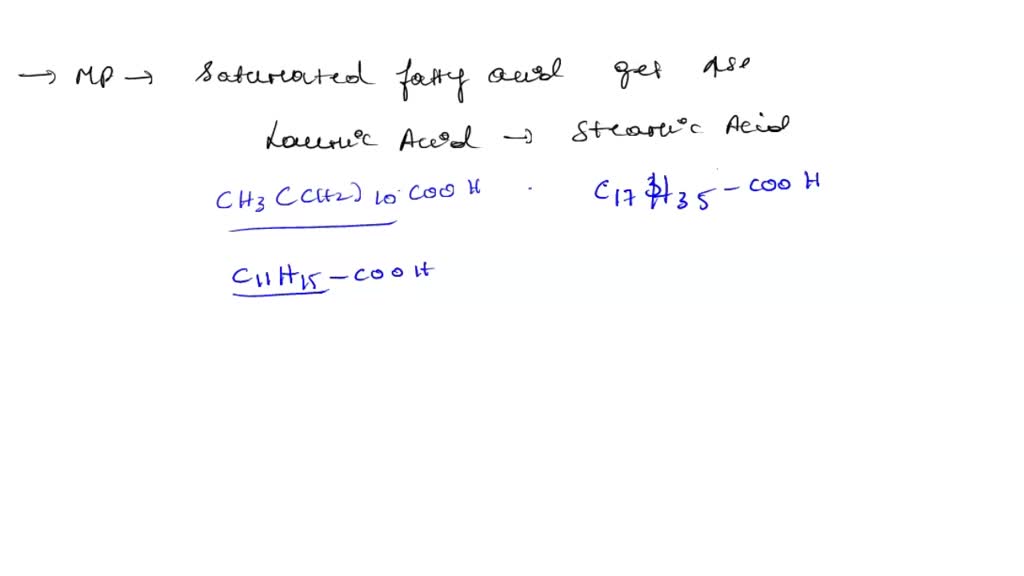 → MP → Saturated fatty acid get rse
Lauric Acid → Stearic Acid
CH3 C C(H2) 10 COO H . C17 H35 - COO H
C11H15 - COO H